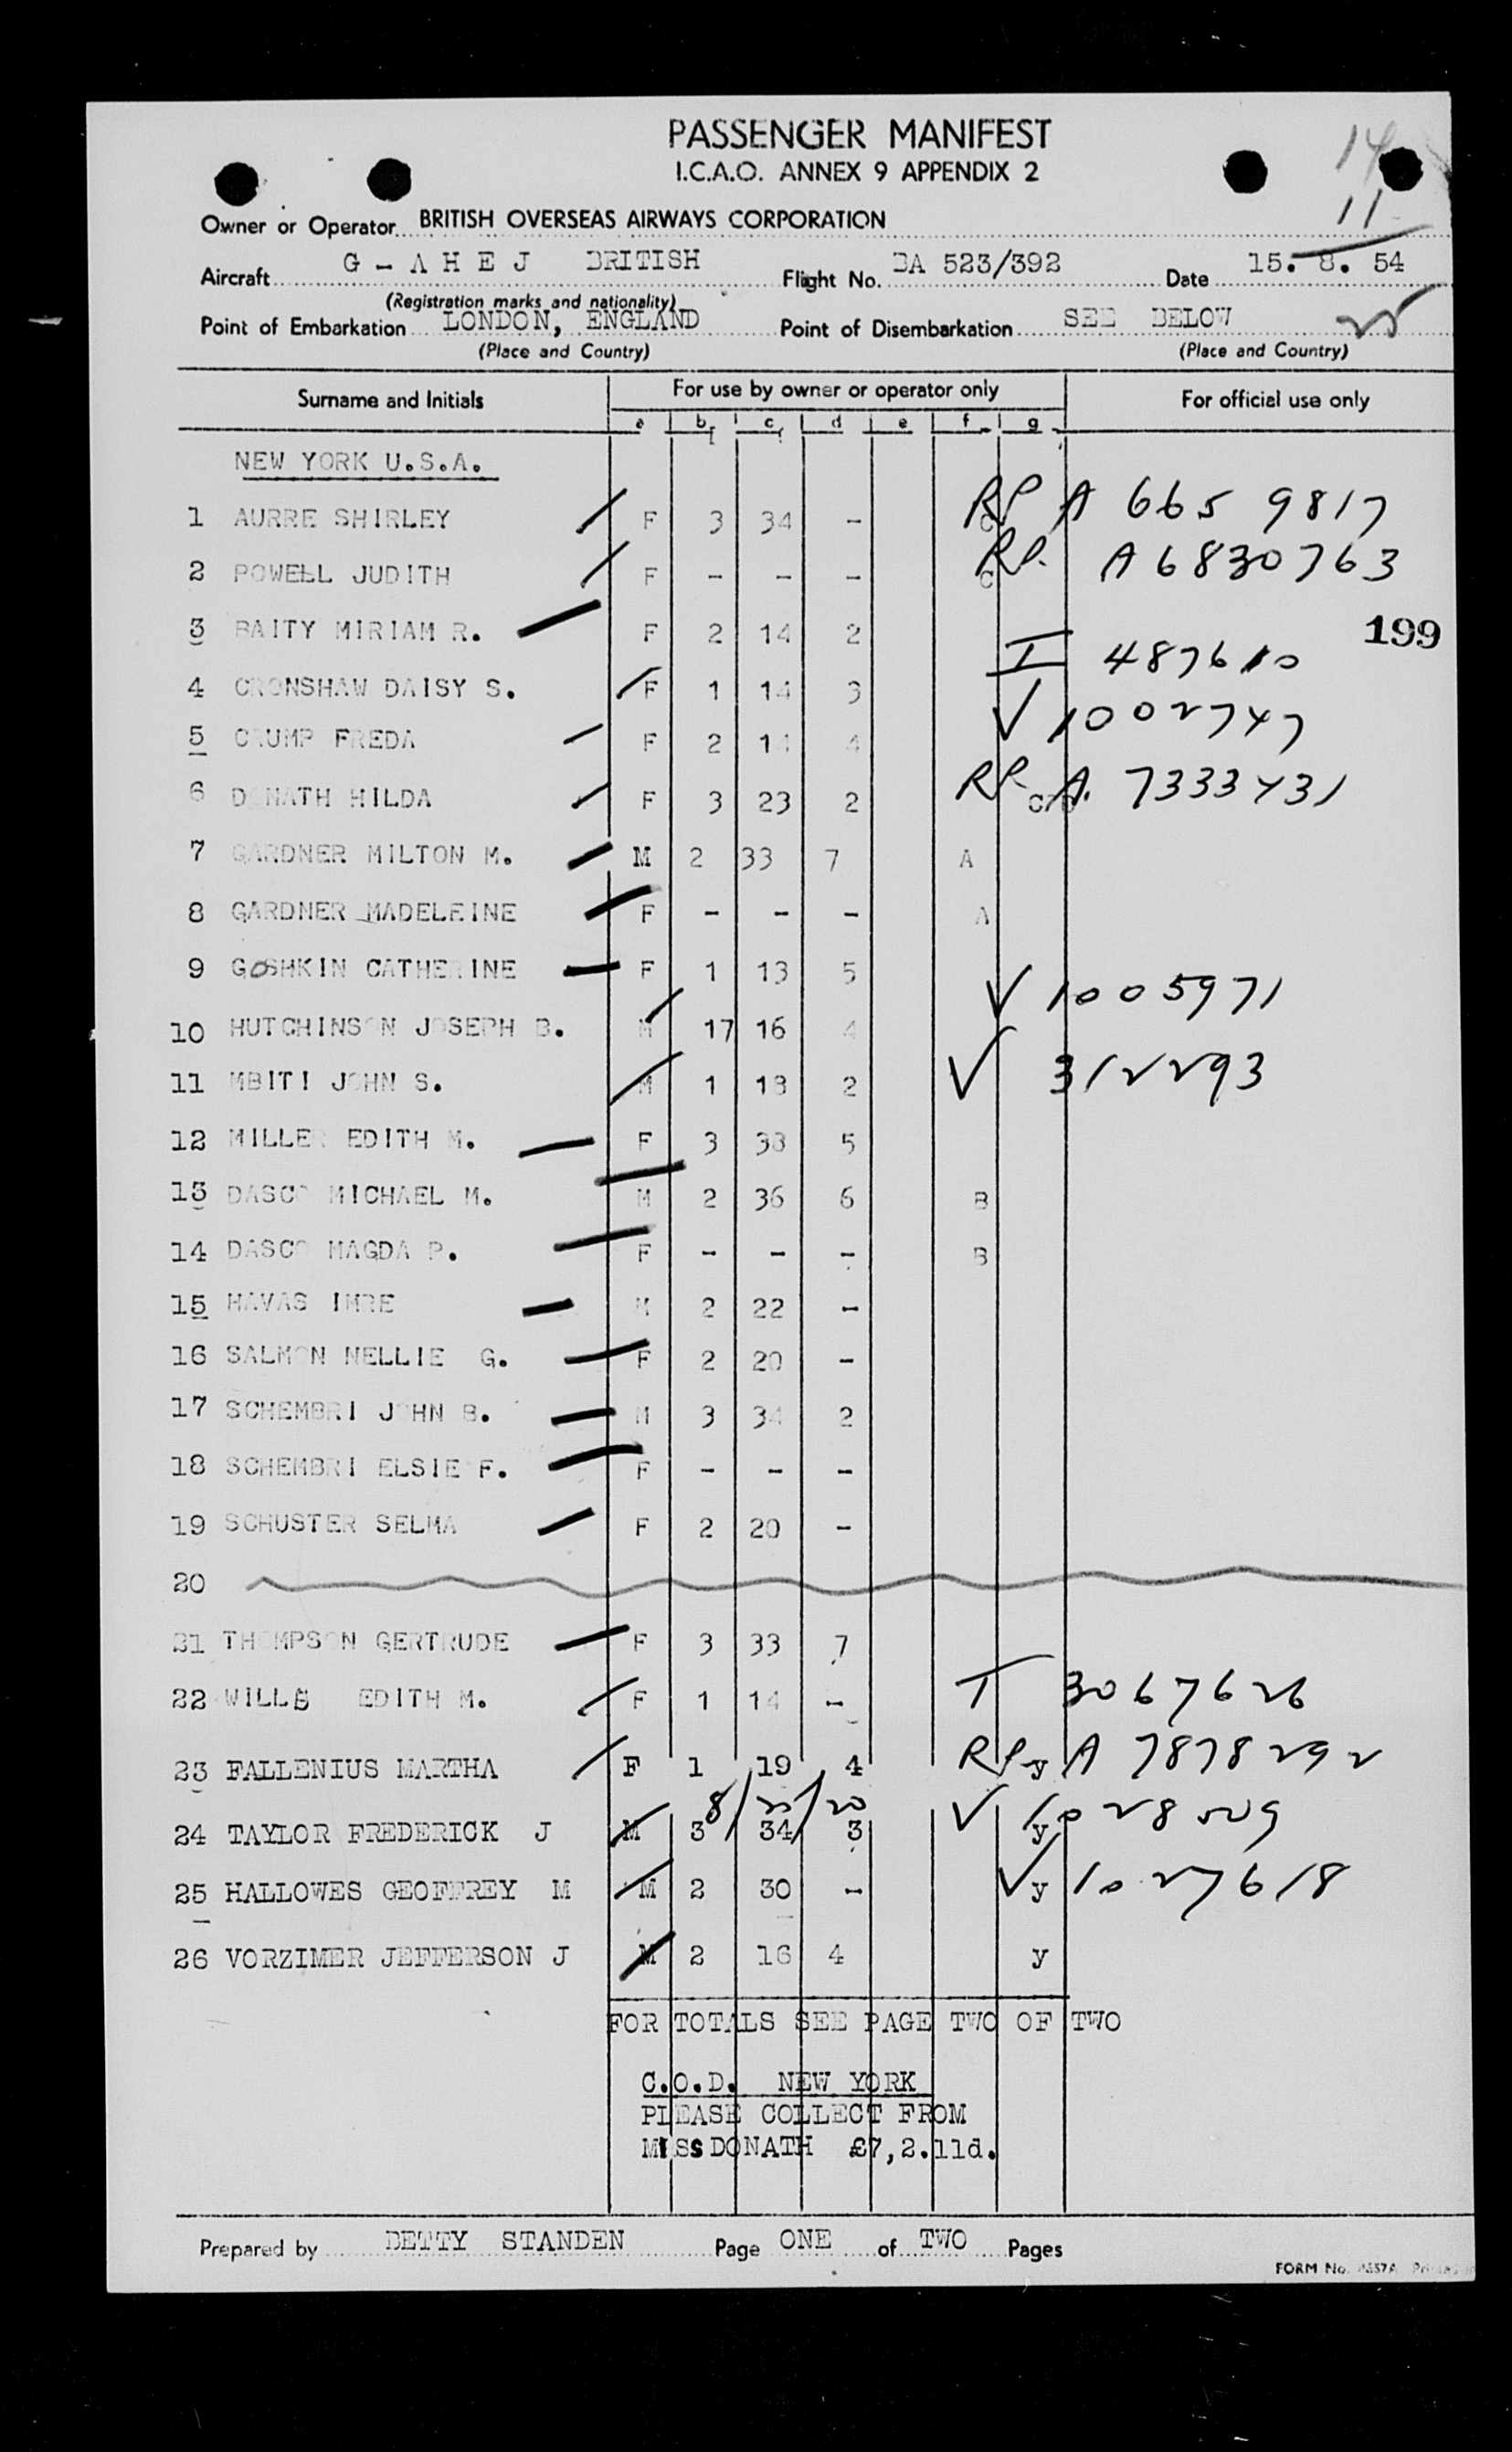 14
11
PASSENGER MANIFEST
I.C.A.O. ANNEX 9 APPENDIX 2
Owner or Operator BRITISH OVERSEAS AIRWAYS CORPORATION
Aircraft G - A H E J BRITISH Flight No. BA 523/392 Date 15. 8. 54
(Registration marks and nationality)
Point of Embarkation LONDON, ENGLAND Point of Disembarkation SEE BELOW
(Place and Country) (Place and Country)
Surname and Initials For use by owner or operator only For official use only
a b c d e f g
NEW YORK U.S.A.
1 AURRE SHIRLEY F 3 34 - C RP A 665 9817
2 POWELL JUDITH F - - - C RP. A6830763
3 BAITY MIRIAM R. F 2 14 2 199
I 487610
4 CRONSHAW DAISY S. F 1 14 3
√ 1002747
5 CRUMP FREDA F 2 14 4
6 DONATH HILDA F 3 23 2 RP A. 7333431
7 GARDNER MILTON M. M 2 33 7 A
8 GARDNER MADELEINE F - - - A
9 GOSHKIN CATHERINE F 1 13 5 √ 1005971
10 HUTCHINSON JOSEPH B. M 17 16 4
11 MBITI JOHN S. M 1 18 2 √ 312293
12 MILLER EDITH M. F 3 38 5
13 DASCO MICHAEL M. M 2 36 6 B
14 DASCO MAGDA P. F - - - B
15 HAVAS IMRE M 2 22 -
16 SALMON NELLIE G. F 2 20 -
17 SCHEMBRI JOHN B. M 3 34 2
18 SCHEMBRI ELSIE F. F - - -
19 SCHUSTER SELMA F 2 20 -
20
21 THOMPSON GERTRUDE F 3 33 7
22 WILLS EDITH M. F 1 14 - T 3067626
23 FALLENIUS MARTHA F 1 19 4 y RP A 7878292
8/22/20
24 TAYLOR FREDERICK J M 3 34 3 y √ 1028509
25 HALLOWES GEOFFREY M M 2 30 - y √ 1027618
26 VORZIMER JEFFERSON J M 2 16 4 y
FOR TOTALS SEE PAGE TWO OF TWO
C.O.D. NEW YORK
PLEASE COLLECT FROM
MISS DONATH £7,2.11d.
Prepared by BETTY STANDEN Page ONE of TWO Pages
FORM No.